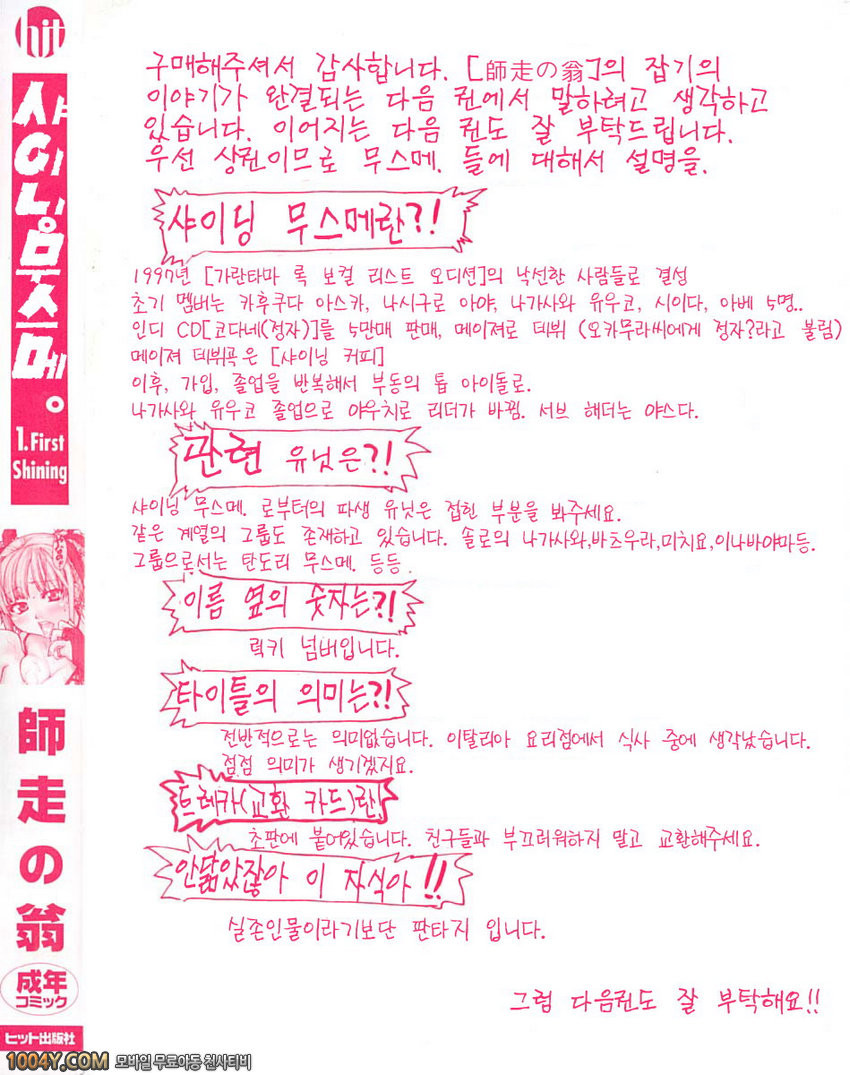 hit
샤이닝무스메。
1.First
Shining
師走の翁
成年
コミック
ヒット出版社
구매해주셔서 감사합니다. [師走の翁]의 잡기의
이야기가 완결되는 다음 권에서 말하려고 생각하고
있습니다. 이어지는 다음 권도 잘 부탁드립니다.
우선 상권이므로 무스메. 들에 대해서 설명을.
샤이닝 무스메란?!
1997년 [가란타마 록 보컬 리스트 오디션]의 낙선한 사람들로 결성
초기 멤버는 카후쿠다 아스카, 나시구로 아야, 나가사와 유우코, 시이다, 아베 5명..
인디 CD[코다네(정자)]를 5만매 판매, 메이져로 데뷔 (오카무라씨에게 정자?라고 불림)
메이져 데뷔곡은 [샤이닝 커피]
이후, 가입, 졸업을 반복해서 부동의 톱 아이돌로.
나가사와 유우코 졸업으로 야우치로 리더가 바뀜. 서브 헤더는 야스다.
관련 유닛은?!
샤이닝 무스메. 로부터의 파생 유닛은 접힌 부분을 봐주세요.
같은 계열의 그룹도 존재하고 있습니다. 솔로의 나가사와,바츠우라,미치요,이나바야마등.
그룹으로서는 탄도리 무스메. 등등
이름 옆의 숫자는?!
럭키 넘버입니다.
타이틀의 의미는?!
전반적으로는 의미없습니다. 이탈리아 요리점에서 식사 중에 생각났습니다.
점점 의미가 생기겠지요.
트레카(교환 카드)란!
초판에 붙어있습니다. 친구들과 부끄러워하지 말고 교환해주세요.
안닮았잖아 이 자식아!!
실존인물이라기보단 판타지 입니다.
그럼 다음권도 잘 부탁해요!!
1004Y.COM 모바일 무료야동 천사티비